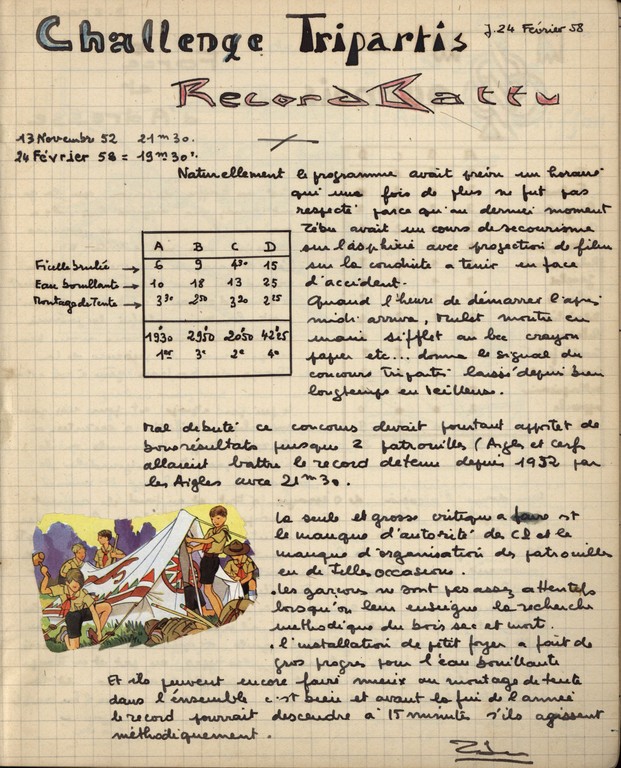 Challenge Tripartis
J. 24 Février 58
Record Battu
13 Novembre 52 21m30.
24 Février 58 = 19m30s.
Naturellement le programme avait prévu un horaire
qui une fois de plus ne fut pas
respecté parce qu'au dernier moment
Zébu avait un cours de secourisme
sur l'asphixie avec projection de film
sur la conduite a tenir en face
d'accident.
Quand l'heure de démarrer l'après
midi arriva, Mulet montre en
main sifflet au bec crayon
papier etc... donna le signal du
concours Triparti laissé depuis bien
longtemps en veilleuse.
A B C D
Ficelle brulée → 6 9 4 30 15
Eau bouillante → 10 18 13 25
Montage de Tente → 3 30 2 50 3 20 2 25
19 30 29 50 20 50 42 25
1er 3e 2e 4e
Mal debuté ce concours devait pourtant apporter de
bons résultats puisque 2 patrouilles (Aigles et Cerfs
allaient battre le record détenu depuis 1952 par
les Aigles avec 21m30.
La seule et grosse critique a faire est
le manque d'autorité des CP et le
manque d'organisation des patrouilles
en de telles occasions.
. les garçons ne sont pas assez attentifs
lorsqu'on leur enseigne la recherche
méthodique du bois sec et mort.
. l'installation de petit foyer a fait de
gros progrès pour l'eau bouillante
Et ils peuvent encore faire mieux au montage de tente
dans l'énsemble c'est bien et avant la fin de l'année
le record pourrait descendre à 15 minutes s'ils agissent
méthodiquement.